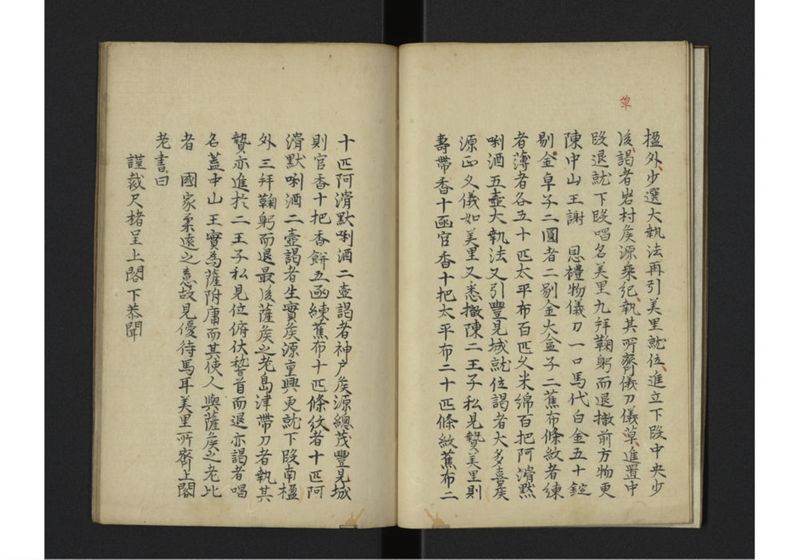 草
楹外少選大執法再引美里就位進立下段中央少
後謁者岩村矦源乗紀執其所齎儀刀儀草進置中
段退就下段唱名美里九拜鞠躬而退撤前方物更
陳中山王謝 恩禮物儀刀一口馬代白金五十錠
剔金卓子二圍者二剔金大盆子二蕉布條紋者練
者薄者各五十匹太平布百匹乂米綿百把阿滑默
唎酒五壺大執法又引豐見城就位謁者大多喜矦
源正乂儀如美里又悉撤陳二王子私見贄美里則
壽帶香十函官香十把太平布二十匹條紋蕉布二
十匹阿滑默唎酒二壺謁者神戶矦源總茂豐見城
則官香十把香餅五函練蕉布十匹條紋者十匹阿
滑默唎酒二壺謁者生實矦源重興更就下段南楹
外三拜鞠躬而退最後薩矦之老島津帶刀者執其
贄亦進於二王子私見位俯伏稽首而退亦謁者唱
名蓋中山王實為薩附庸而其使人與薩矦之老比
者 國家柔遠之意故見優待馬耳美里所齎上閣
老書曰
謹裁尺楮呈上閣下恭聞